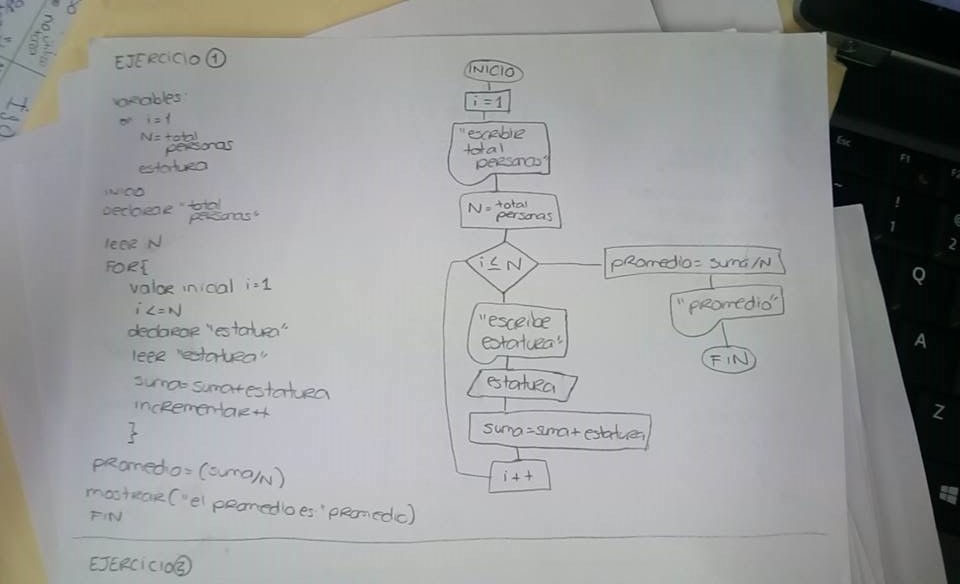 EJERCICIO 1
variables:
i=1
N=total
personas
estatura
INICIO
declarar "total
personas"
leer N
FOR{
valor inicial i=1
i<=N
declarar "estatura"
leer "estatura"
suma=suma+estatura
incrementar++
}
promedio=(suma/N)
mostrar("el promedio es" promedio)
FIN
INICIO
i=1
"escribir
total
personas"
N=total
personas
i≤N
"escribe
estatura"
estatura
suma=suma+estatura
i++
promedio=suma/N
"promedio"
FIN
EJERCICIO 2
Esc
F1
F2
~
!
1
2
Q
A
Z